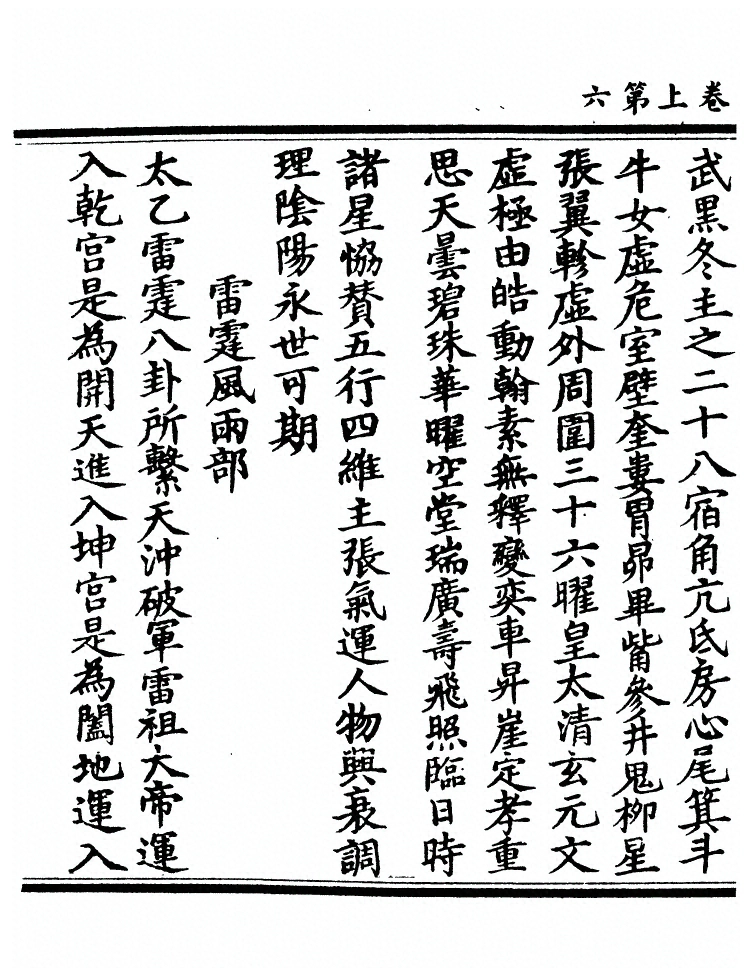 卷上第六
武黑冬主之二十八宿角亢氐房心尾箕斗
牛女虛危室壁奎婁胃昴畢觜參井鬼柳星
張翼軫虛外周圍三十六曜皇太清玄元文
虛極由皓動翰素無釋變奕車昇崖定孝重
思天曇碧珠華曜空堂瑞廣壽飛照臨日時
諸星恊贊五行四維主張氣運人物興衰調
理陰陽永世可期
雷霆風雨部
太乙雷霆八卦所繫天沖破軍雷祖大帝運
入乾宮是為開天進入坤宮是為闔地運入